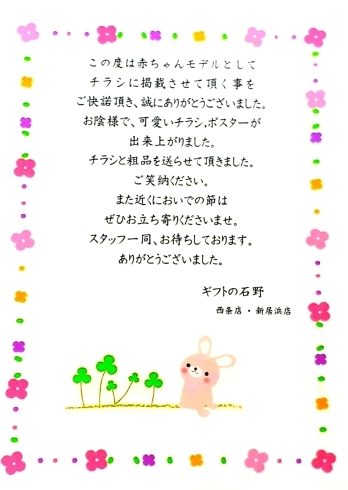 この度は赤ちゃんモデルとして
チラシに掲載させて頂く事を
ご快諾頂き、誠にありがとうございました。
お陰様で、可愛いチラシ,ポスターが
出来上がりました。
チラシと粗品を送らせて頂きました。
ご笑納ください。
また近くにおいでの節は
ぜひお立ち寄りくださいませ。
スタッフ一同、お待ちしております。
ありがとうございました。
ギフトの石野
西条店・新居浜店